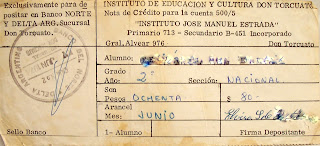 Exclusivamente para de
positar en Banco NORTE
Y DELTA ARG. Sucursal
Don Torcuato.
INSTITUTO DE EDUCACION Y CULTURA DON TORCUATO
Nota de Crédito para la cuenta 500/5
"INSTITUTO JOSE MANUEL ESTRADA"
Primario 713 - Secundario B-451 Incorporado
Gral. Alvear 976 Don Torcuato
Alumno:
Grado
Año: 2º Sección: NACIONAL
Son
Pesos OCHENTA $ 80.-
Arancel
Mes: JUNIO
Sello Banco 1- Alumno Firma Depositante